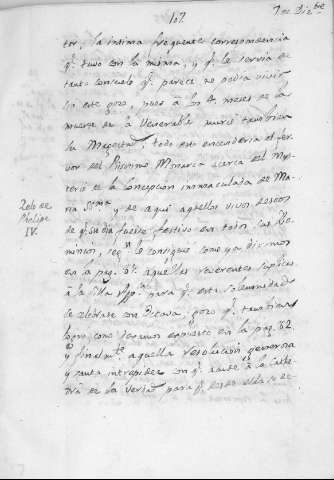 107
7 de Dizbre
tes, la intima frequente correspondencia
qe. tuvo con la misma, y qe. le servia de
tanto consuelo qe. parece no podia vivir
sin este gozo, pues á los 4 meses de la
muerte de la Venerable murió tambien
la Magestad, todo esto encenderia el fer
vor del Piissimo Monarca acerca del Mys
terio de la Concepcion inmaculada de Ma
ria SSma. y de aqui aquellos vivos deseos
de qe. su dia fuese festivo en todos sus Do
minios, segn. lo consiguió como ya diximos
en la pag. aquellas reverentes suplicas
á la Silla Appca. para qe. esta solemnidad
se zelebrase con Octava, gozo qe. tambien
logró como dexamos expuesto en la pag. 82
y finalmte. aquella resolucion generosa
y santa intrepidez con qe. á la Cathe
dra de la Verdad para qe. desde ella se de
Zelo de
Phelipe
IV.